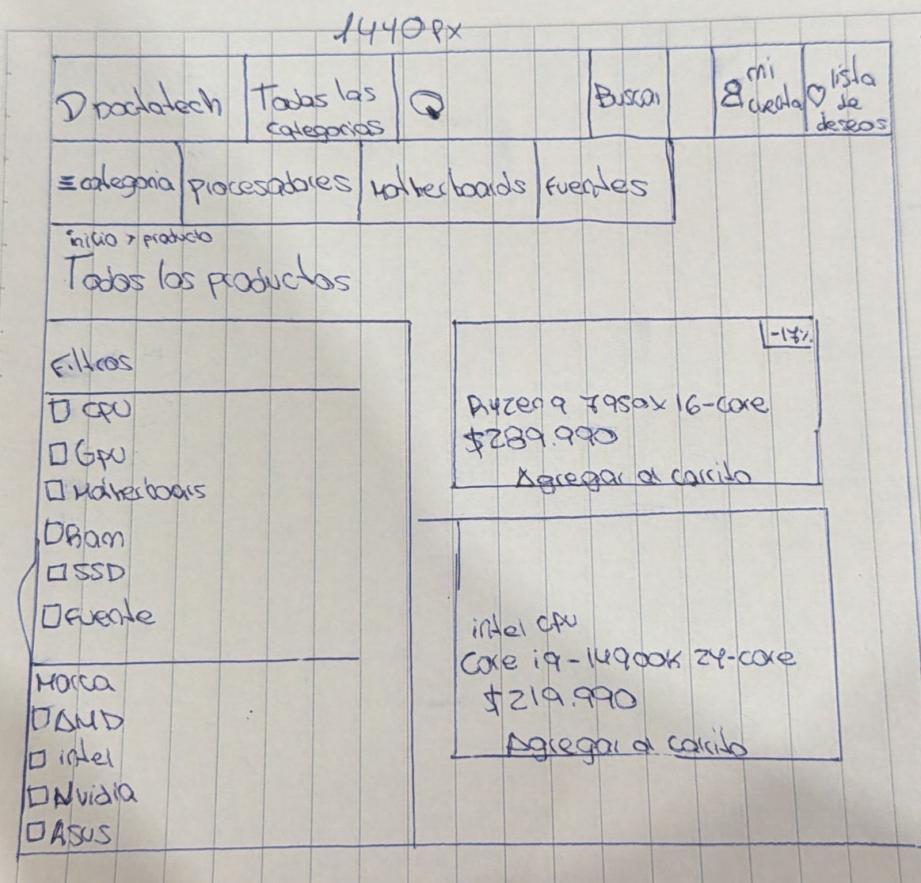 1440px
Todas las categorias
Buscar
mi cuenta
lista de deseos
≡ categoria
procesadores
Motherboards
Fuentes
inicio > producto
Todos los productos
Filtros
CPU
GPU
Motherboars
Ram
SSD
Fuente
Marca
AMD
intel
Nvidia
ASUS
-17%
Ryzen 9 7950x 16-core
$289.990
Agregar al carrito
intel CPU
Core i9-14900K 24-core
$219.990
Agregar al carrito